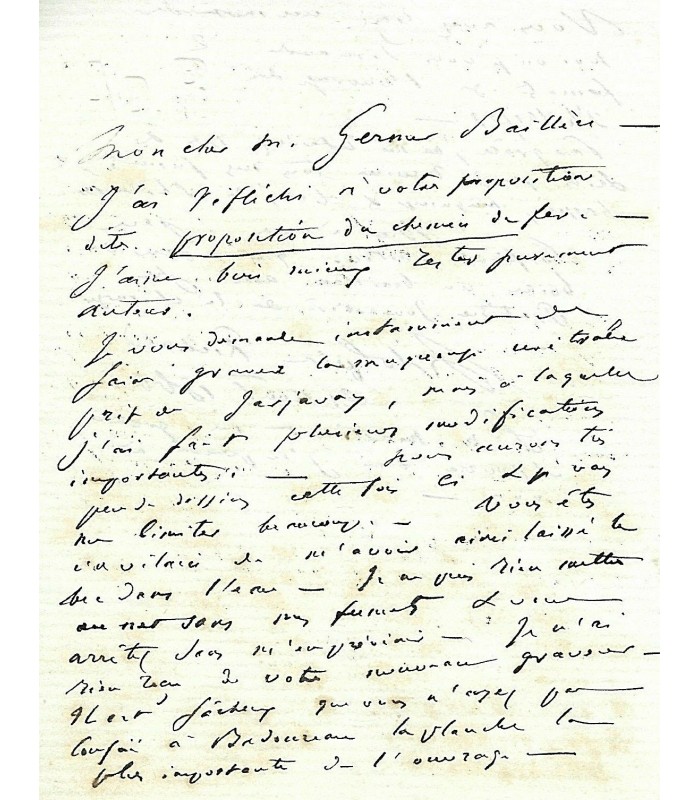 Mon cher M. Germer Baillière —
J'ai réfléchi à votre proposition
dite proposition du chemin de fer. —
J'aime bien mieux rester purement
auteur.
Je vous demande instamment de
faire graver la muqueuse uréthrale
prise de Jarjavay, mais à laquelle
j'ai fait plusieurs modifications
importantes; — nous aurons très
peu de dessins cette fois ci & je vais
me limiter beaucoup. — Vous êtes
de m'avoir ainsi laissé le
bec dans l'eau — Je ne puis rien mettre
au net sans & vous
arrêtez sans m'en prévenir — Je n'ai
rien reçu de votre nouveau graveur —
Il est fâcheux que vous n'ayez pas
confié à Badoureau la planche la
plus importante de l'ouvrage —